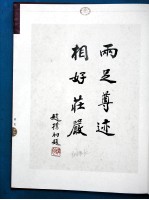 雨足尊迹
相好莊嚴
趙樸初題